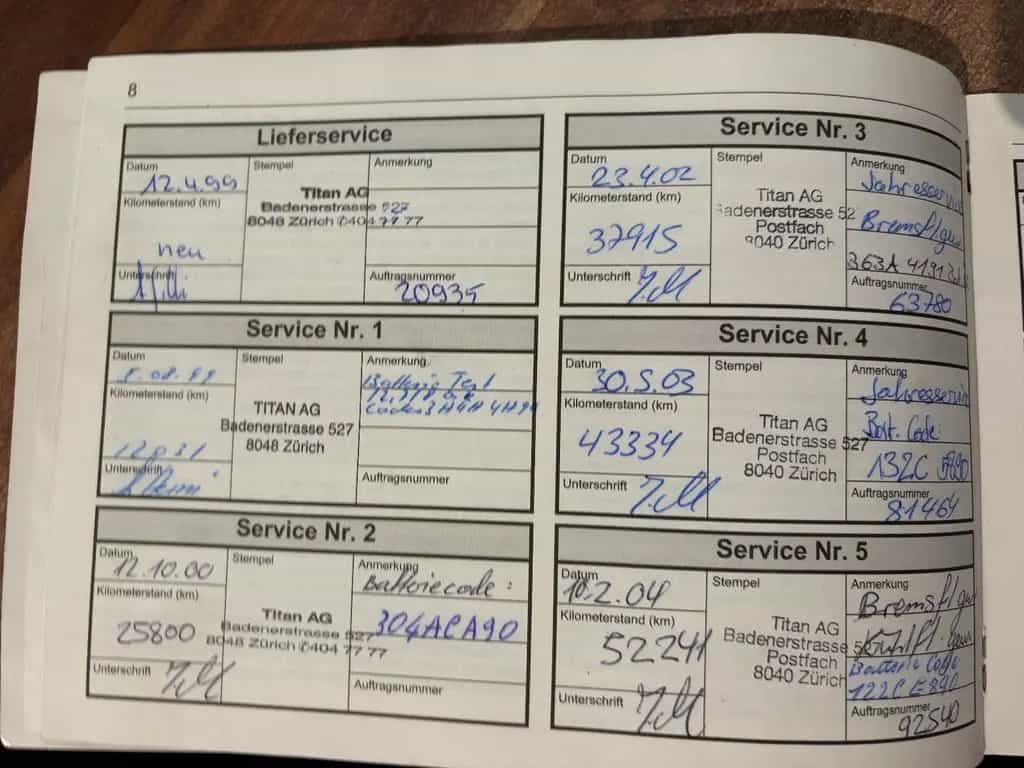 8
Lieferservice
Datum
12.4.99
Stempel
Anmerkung
Kilometerstand (km)
neu
Titan AG
Badenerstrasse 527
8048 Zürich ✆404 77 77
Unterschrift
Auftragsnummer
20935
Service Nr. 1
Datum
Stempel
Anmerkung
Batterie Test
Kilometerstand (km)
TITAN AG
Badenerstrasse 527
8048 Zürich
Unterschrift
Auftragsnummer
Service Nr. 2
Datum
12.10.00
Stempel
Anmerkung
Batteriecode :
304ACA90
Kilometerstand (km)
25800
Titan AG
Badenerstrasse 527
8048 Zürich ✆404 77 77
Unterschrift
Auftragsnummer
Service Nr. 3
Datum
23.4.02
Stempel
Anmerkung
Kilometerstand (km)
37915
Titan AG
Badenerstrasse 52
Postfach
8040 Zürich
363A
Unterschrift
Auftragsnummer
63780
Service Nr. 4
Datum
30.5.03
Stempel
Anmerkung
Kilometerstand (km)
43334
Titan AG
Badenerstrasse 527
Postfach
8040 Zürich
Code
132C
Unterschrift
Auftragsnummer
81464
Service Nr. 5
Datum
10.2.04
Stempel
Anmerkung
Kilometerstand (km)
52241
Titan AG
Badenerstrasse
Postfach
8040 Zürich
Batterie Code
122C E890
Unterschrift
Auftragsnummer
92540